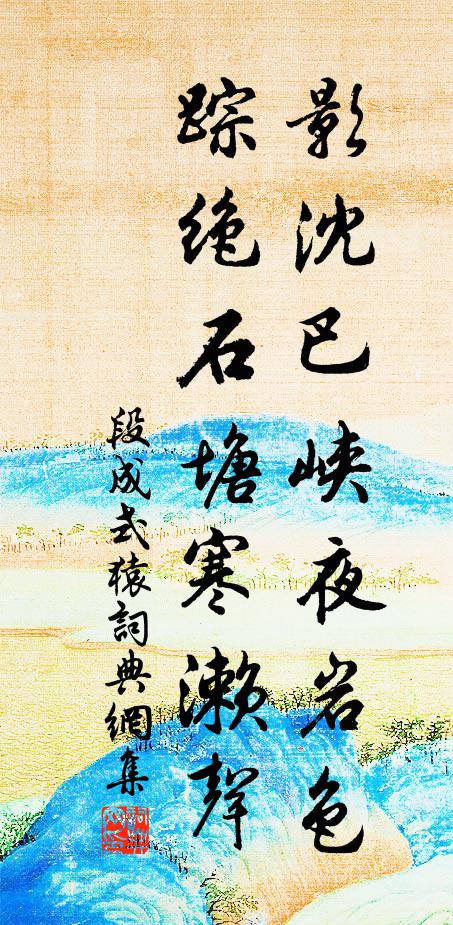 影沈巴峽夜岩色
踪绝石塘寒濑聲
段成式猿詞典網集